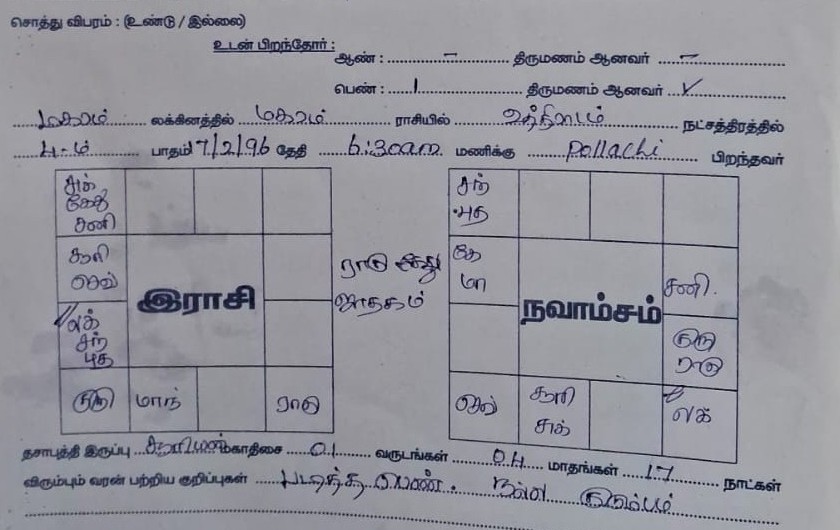 சொத்து விபரம் : (உண்டு / இல்லை)
உடன் பிறந்தோர் :
ஆண் : - திருமணம் ஆனவர் -
பெண் : 1 திருமணம் ஆனவர் ✓
மகரம் லக்கினத்தில் மகரம் ராசியில் உத்திராடம் நட்சத்திரத்தில்
4-ம் பாதம் 17/2/96 தேதி 6:30am மணிக்கு Pollachi பிறந்தவர்
சுக் கேது சனி
சந் புத
சூரி செவ்
ராகு கேது
ஜாதகம்
கே மா
சனி
இராசி
நவாம்சம்
லக் சந் புத
குரு ராகு
குரு மாந் ராகு
செவ் சூரி சுக் லக்
தசாபுத்தி இருப்பு சூரிய மகாதிசை 01 வருடங்கள் 04 மாதங்கள் 17 நாட்கள்
விரும்பும் வரன் பற்றிய குறிப்புகள் படித்த பெண். நல்ல குடும்பம்